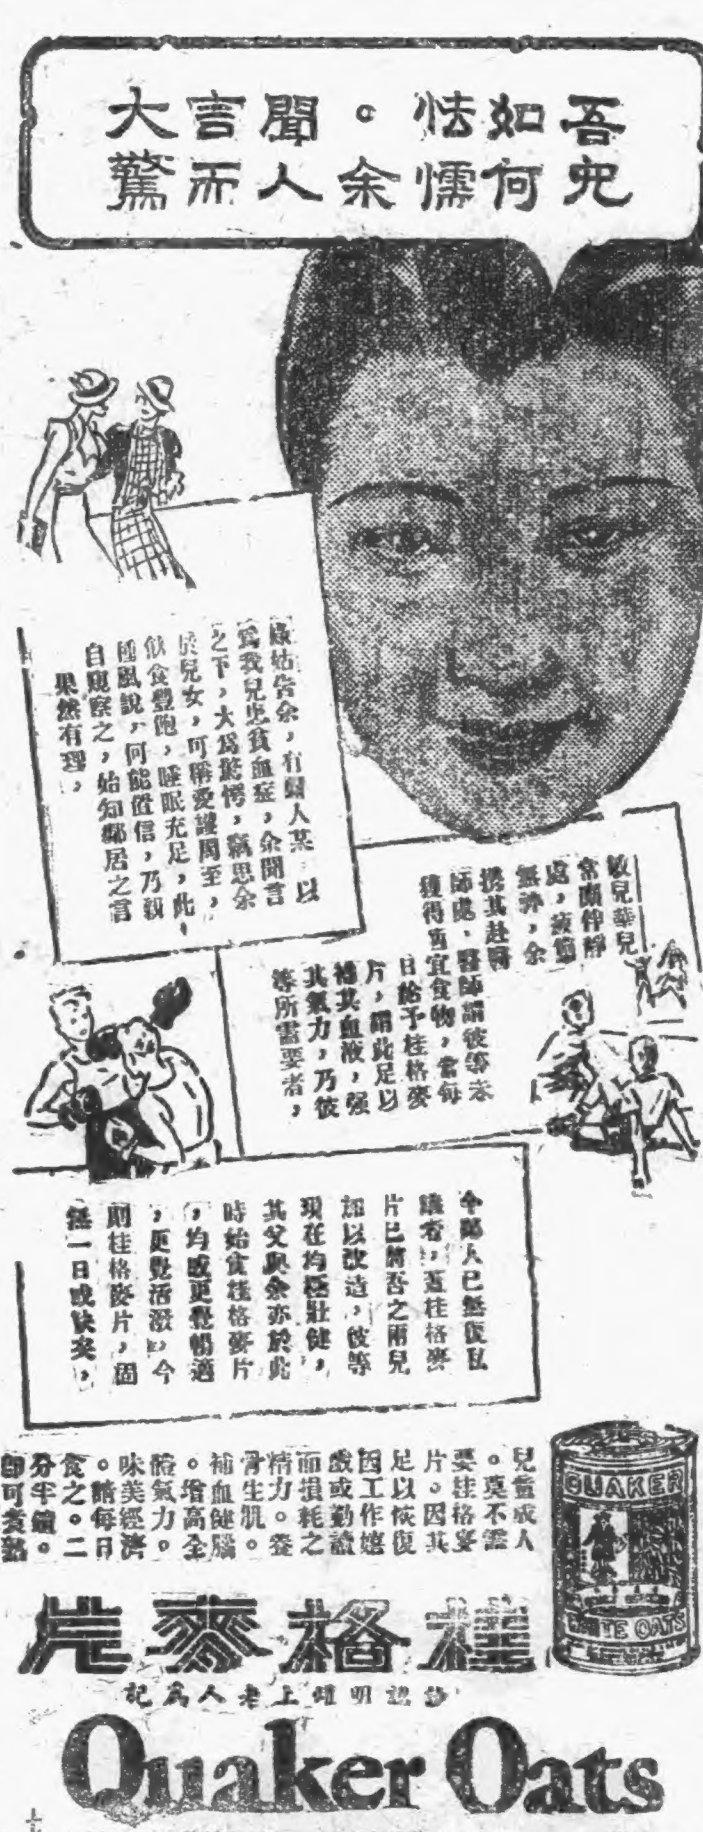 吾兒如何怯懦。余聞人言而大驚
姑告余，有婦人某，以
爲我兒患貧血症，余聞言
之下，大爲驚愕，竊思余
於兒女，可稱愛護周至，
飲食豐飽，睡眠充足，此
種風說，何能置信，乃親
自觀察之，始知鄰居之言
果然有理，
敏兒華兒
常頗伴靜
處，疲憊
無神，余
携其赴醫
師處，醫師謂彼等未
獲得適宜食物，當每
日給予桂格麥
片，謂此足以
補其血液，强
其氣力，乃彼
等所需要者，
今鄰人已無復私
議者，蓋桂格麥
片已將吾之兩兒
加以改造，彼等
現在均極壯健，
其父與余亦於此
時始食桂格麥片
，均感更覺暢適
，更覺活潑，今
則桂格麥片，固
無一日或缺矣，
兒童成人
。莫不需
要桂格麥
片。因其
足以恢復
因工作嬉
戲或勤讀
而損耗之
精力。養
骨生肌。
補血健腦
。增高全
體氣力。
味美經濟
。請每日
食之。二
分半鐘。
即可煮熟
QUAKER
WHITE OATS
桂格麥片
請認明罐上老人爲記
Quaker Oats